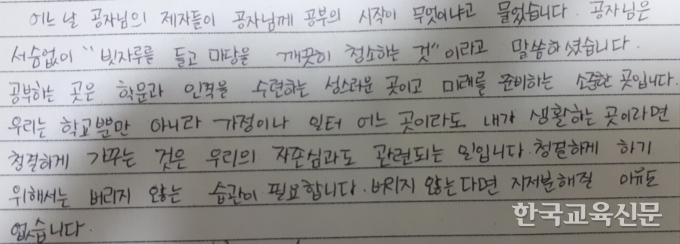 어느 날 공자님의 제자들이 공자님께 공부의 시작이 무엇이냐고 물었습니다. 공자님은
서슴없이 "빗자루를 들고 마당을 깨끗이 청소하는 것" 이라고 말씀하셨습니다.
공부하는 곳은 학문과 인격을 수련하는 성스러운 곳이고 미래를 준비하는 소중한 곳입니다.
우리는 학교뿐만 아니라 가정이나 일터 어느 곳이라도 내가 생활하는 곳이라면
청결하게 가꾸는 것은 우리의 자존심과도 관련되는 일입니다. 청결하게 하기
위해서는 버리지 않는 습관이 필요합니다. 버리지 않는다면 지저분해질 이유도
없습니다.
한국교육신문